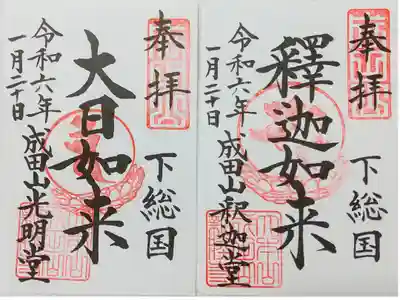 奉拝
下総国
釋迦如来
令和六年
一月二十日
成田山釈迦堂
奉拝
下総国
大日如来
令和六年
一月二十日
成田山光明堂